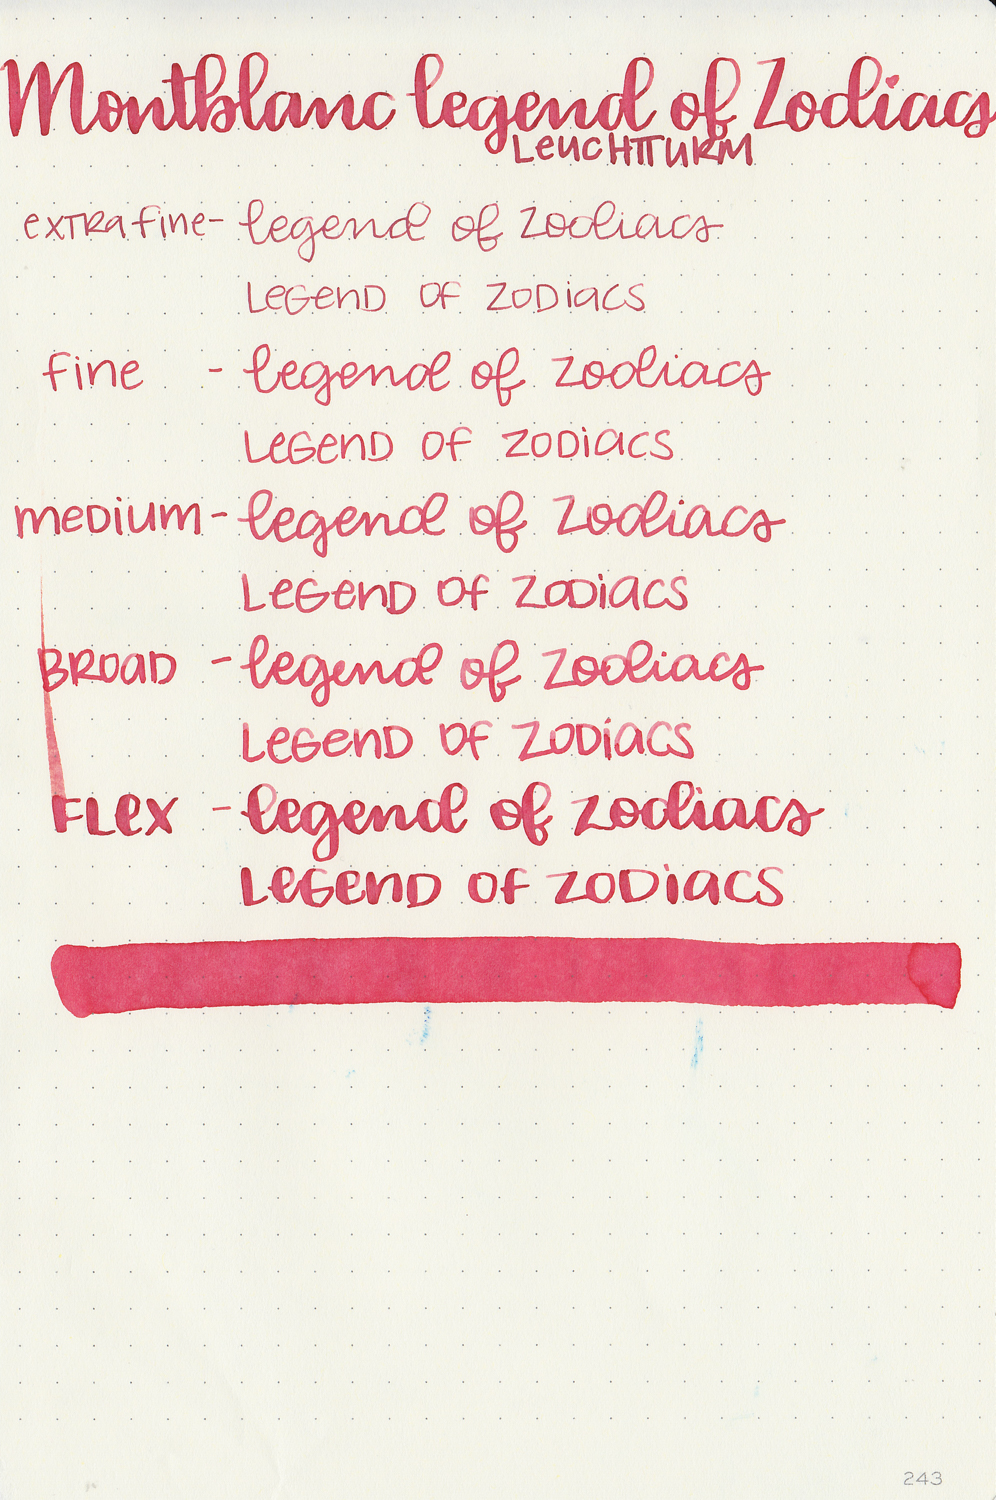 Montblanc legend of Zodiacs
LEUCHTTURM
extra fine - legend of Zodiacs
LEGEND OF ZODIACS
fine - legend of Zodiacs
LEGEND OF ZODIACS
MEDIUM - legend of Zodiacs
LEGEND OF ZODIACS
BROAD - legend of Zodiacs
LEGEND OF ZODIACS
FLEX - legend of zodiacs
LEGEND OF ZODIACS
243